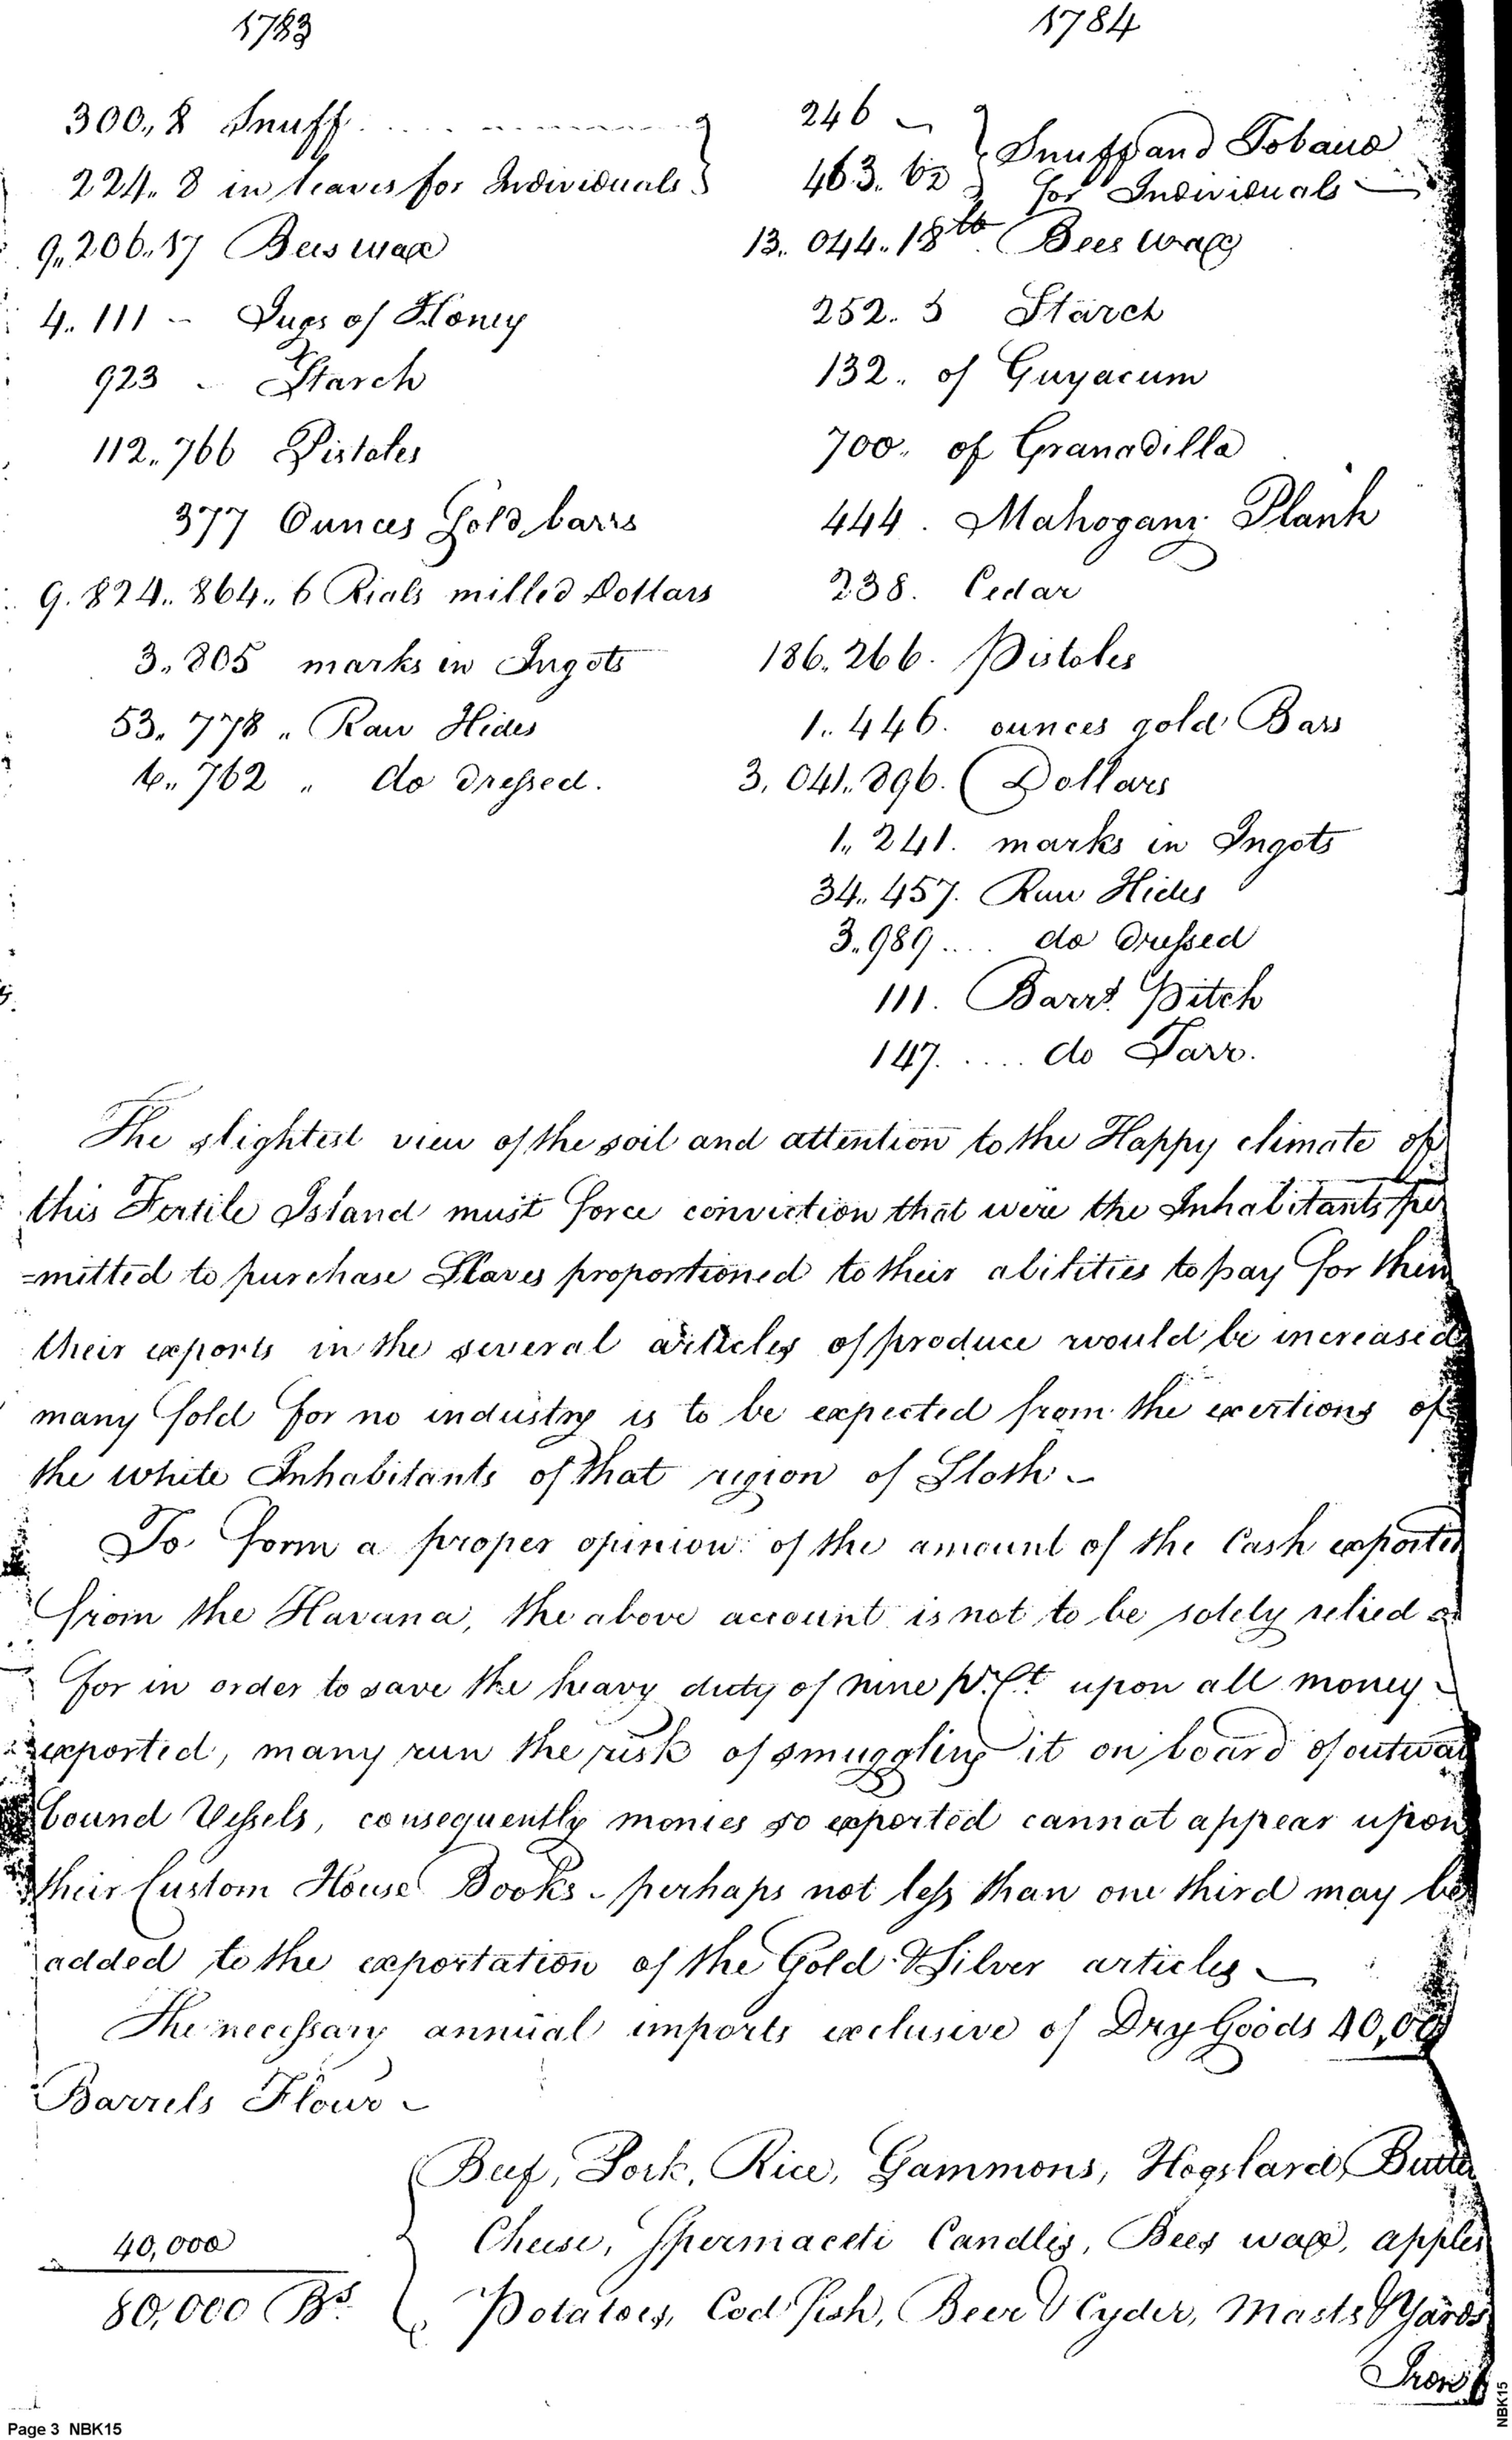 1783
300,, 8 Snuff
224. 8 in leaves for Individuals
9,, 206,, 17 Bees wax
4. 111 - Jugs of Honey
923 - Starch
112,, 766 Pistoles
377 Ounces Gold barrs
9. 824,, 864,, 6 Rials milled Dollars
3,, 805 marks in Ingots
53. 778 ,, Raw Hides
6,, 762 ,, do dressed.
1784
246 -
463. 62 } Snuff and Tobacco
for Individuals
13. 044,, 18 lb Bees wax
252. 5 Starch
132,, of Guyacum
700,, of Granadilla
444. Mahogany Plank
238. Cedar
186. 266. Pistoles
1,, 446. ounces gold Bars
3. 041,, 896. Dollars
1,, 241. marks in Ingots
34,, 457. Raw Hides
3,, 989 .... do dressed
111. Barrs. Pitch
147. .... do Tarr.
The slightest view of the soil and attention to the Happy climate of
this Fertile Island must force conviction that were the Inhabitants per
=mitted to purchase Slaves proportioned to their abilities to pay for them
their exports in the several articles of produce would be increased
many fold for no industry is to be expected from the exertions of
the white Inhabitants of that region of Sloth. -
To form a proper opinion of the amount of the Cash exported
from the Havana, the above account is not to be solely relied on
for in order to save the heavy duty of nine pr. Ct. upon all money -
exported, many run the risk of smuggling it on board of outward
bound Vessels, consequently monies so exported cannot appear upon
their Custom House Books - perhaps not less than one third may be
added to the exportation of the Gold & Silver articles -
The necessary annual imports exclusive of Dry Goods 40,000
Barrels Flour -
Beef, Pork, Rice, Gammons, Hogslard, Butter
40,000 Cheese, Spermaceti Candles, Bees wax, apples
80,000 Bs. Potatoes, Cod fish, Beer & Cyder, Masts & Yards
Iron
Page 3 NBK15
NBK15